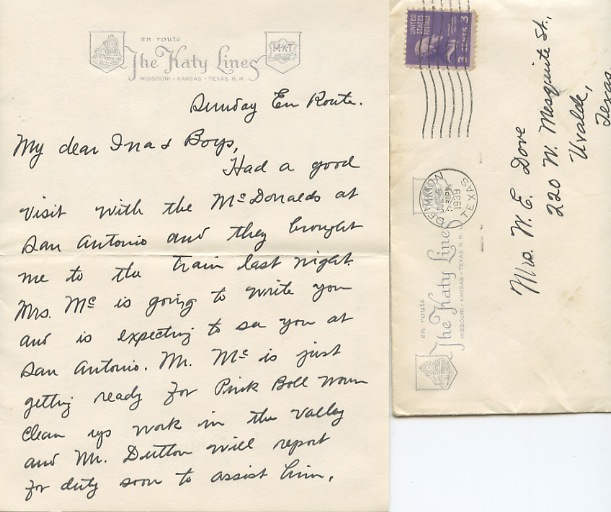 en route
The Katy Lines
MISSOURI - KANSAS - TEXAS R.R.
M-K-T
Sunday En Route.
My dear Ina & Boys,
Had a good
visit with the McDonalds at
San Antonio and they brought
me to the train last night.
Mrs. Mc is going to write you
and is expecting to see you at
San Antonio. Mr. Mc is just
getting ready for Pink Boll worm
clean up work in the valley
and Mr. Dutton will report
for duty soon to assist him.
UNITED STATES
POSTAGE
3 CENTS 3
DENISON
1939
TEXAS
Mrs. W. E. Dove
220 W. Mesquite St.,
Uvalde,
Texas
en route
The Katy Lines
MISSOURI - KANSAS - TEXAS R.R.